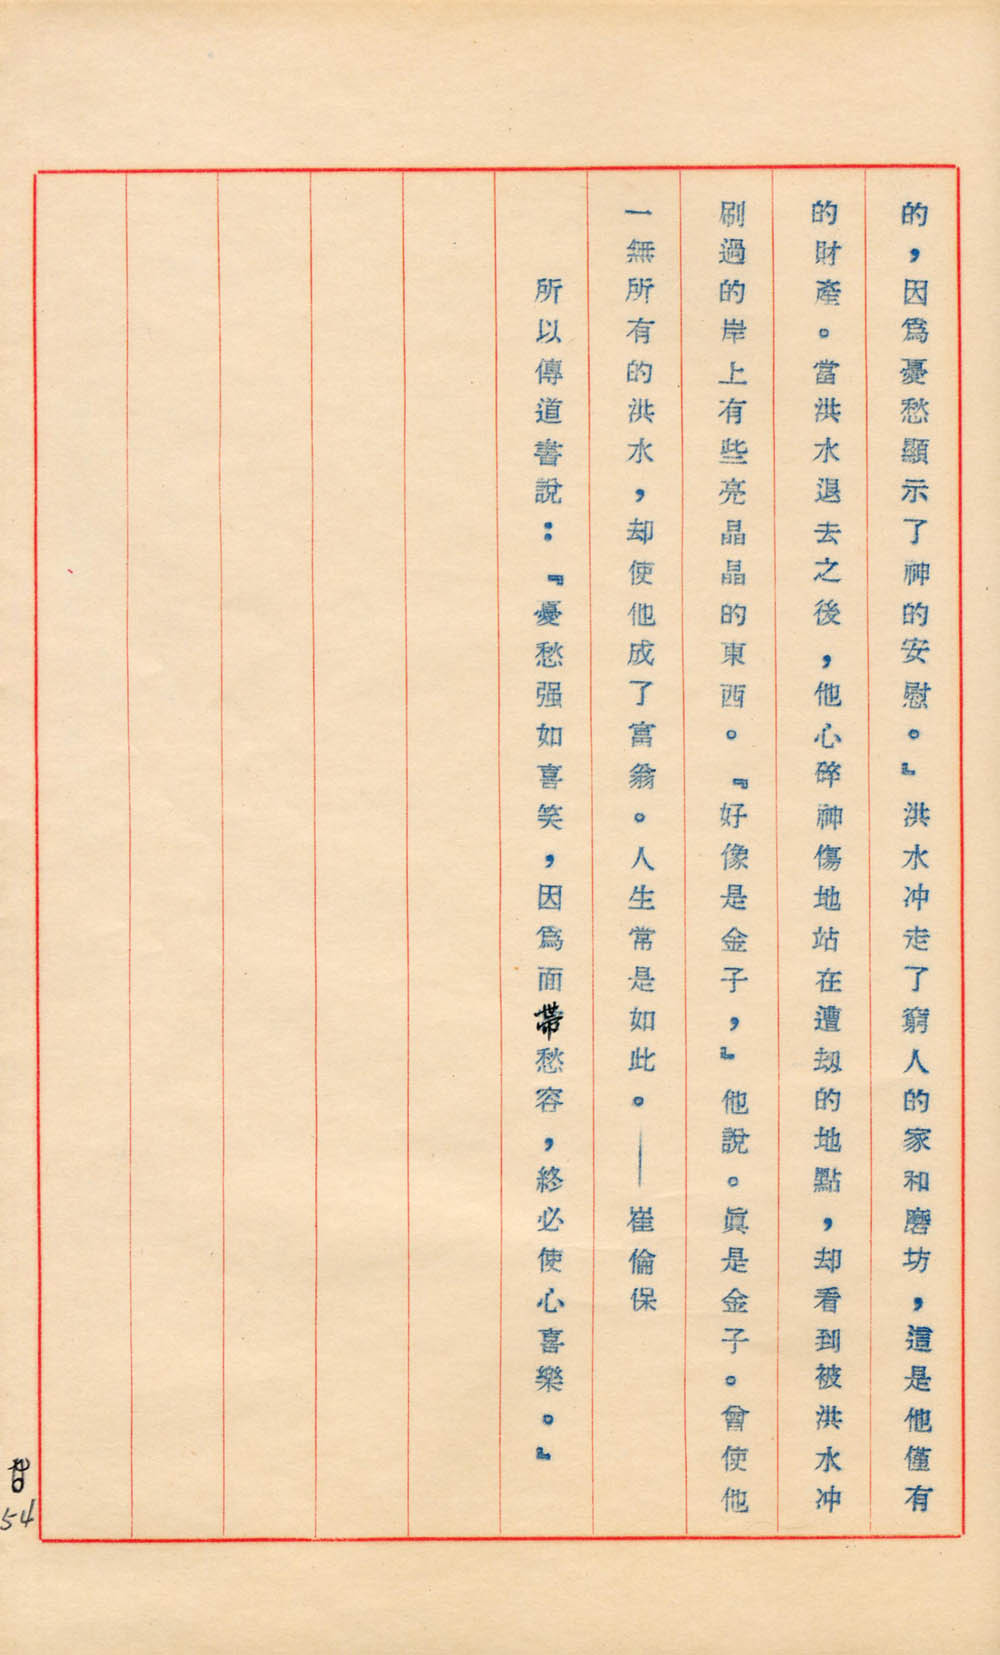 的，因爲憂愁顯示了神的安慰。』洪水冲走了窮人的家和磨坊，這是他僅有
的財產。當洪水退去之後，他心碎神傷地站在遭刼的地點，却看到被洪水冲
刷過的岸上有些亮晶晶的東西。『好像是金子，』他說。眞是金子。曾使他
一無所有的洪水，却使他成了富翁。人生常是如此。——崔倫保
所以傳道書說：『憂愁强如喜笑，因爲面帶愁容，終必使心喜樂。』
54